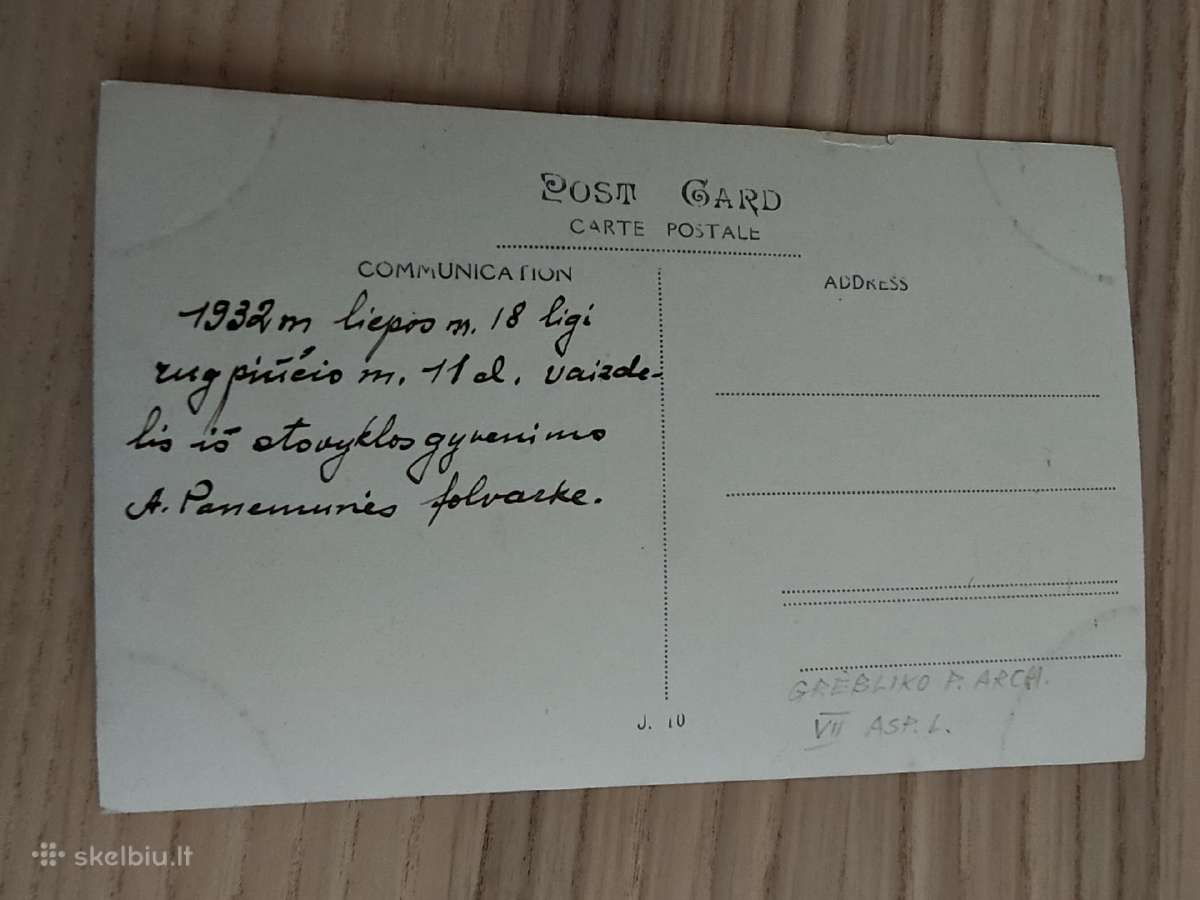 POST CARD
CARTE POSTALE
COMMUNICATION
ADDRESS
1932 m liepos m. 18 ligi
rugpiučio m. 11 d. vaizde-
lis iš stovyklos gyvenimo
A. Panemunės folvarke.
J. 10
GRĖBLIKO P. ARCH.
VII ASP. L.
skelbiu.lt